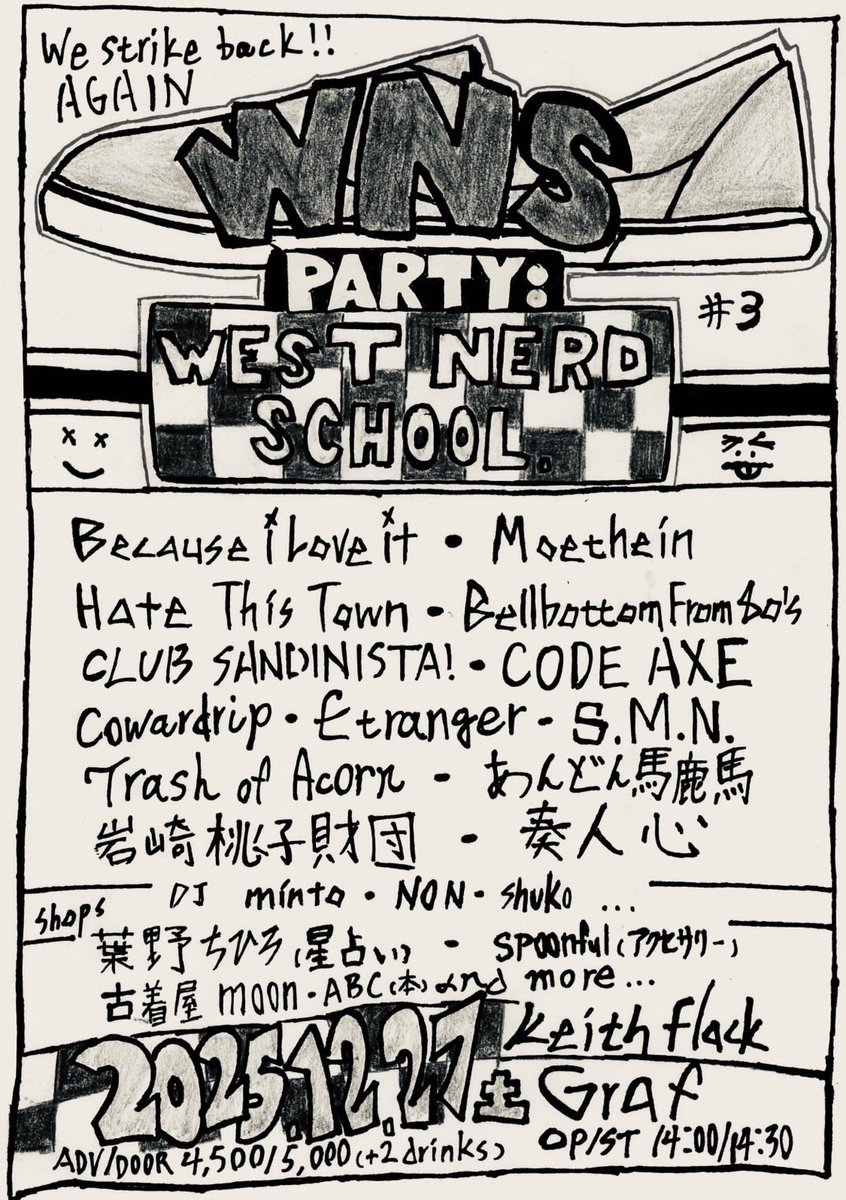 We strike back!!
AGAIN
WNS
PARTY:
#3
WEST NERD
SCHOOL.
Because i Love it • Moethein
Hate This Town • Bellbottom From 80's
CLUB SANDINISTA! • CODE AXE
Cowardrip • Etranger - S.M.N.
Trash of Acorn - あんどん馬鹿馬
岩崎桃子財団 - 奏人心
DJ minto • NON - shuko ...
shops
葉野ちひろ(星占い) - spoonful(アクセサリー)
古着屋 moon • ABC(本) and more...
2025.12.27 土
Keith flack
Graf
OP/ST 14:00/14:30
ADV/DOOR 4,500/5,000(+2drinks)